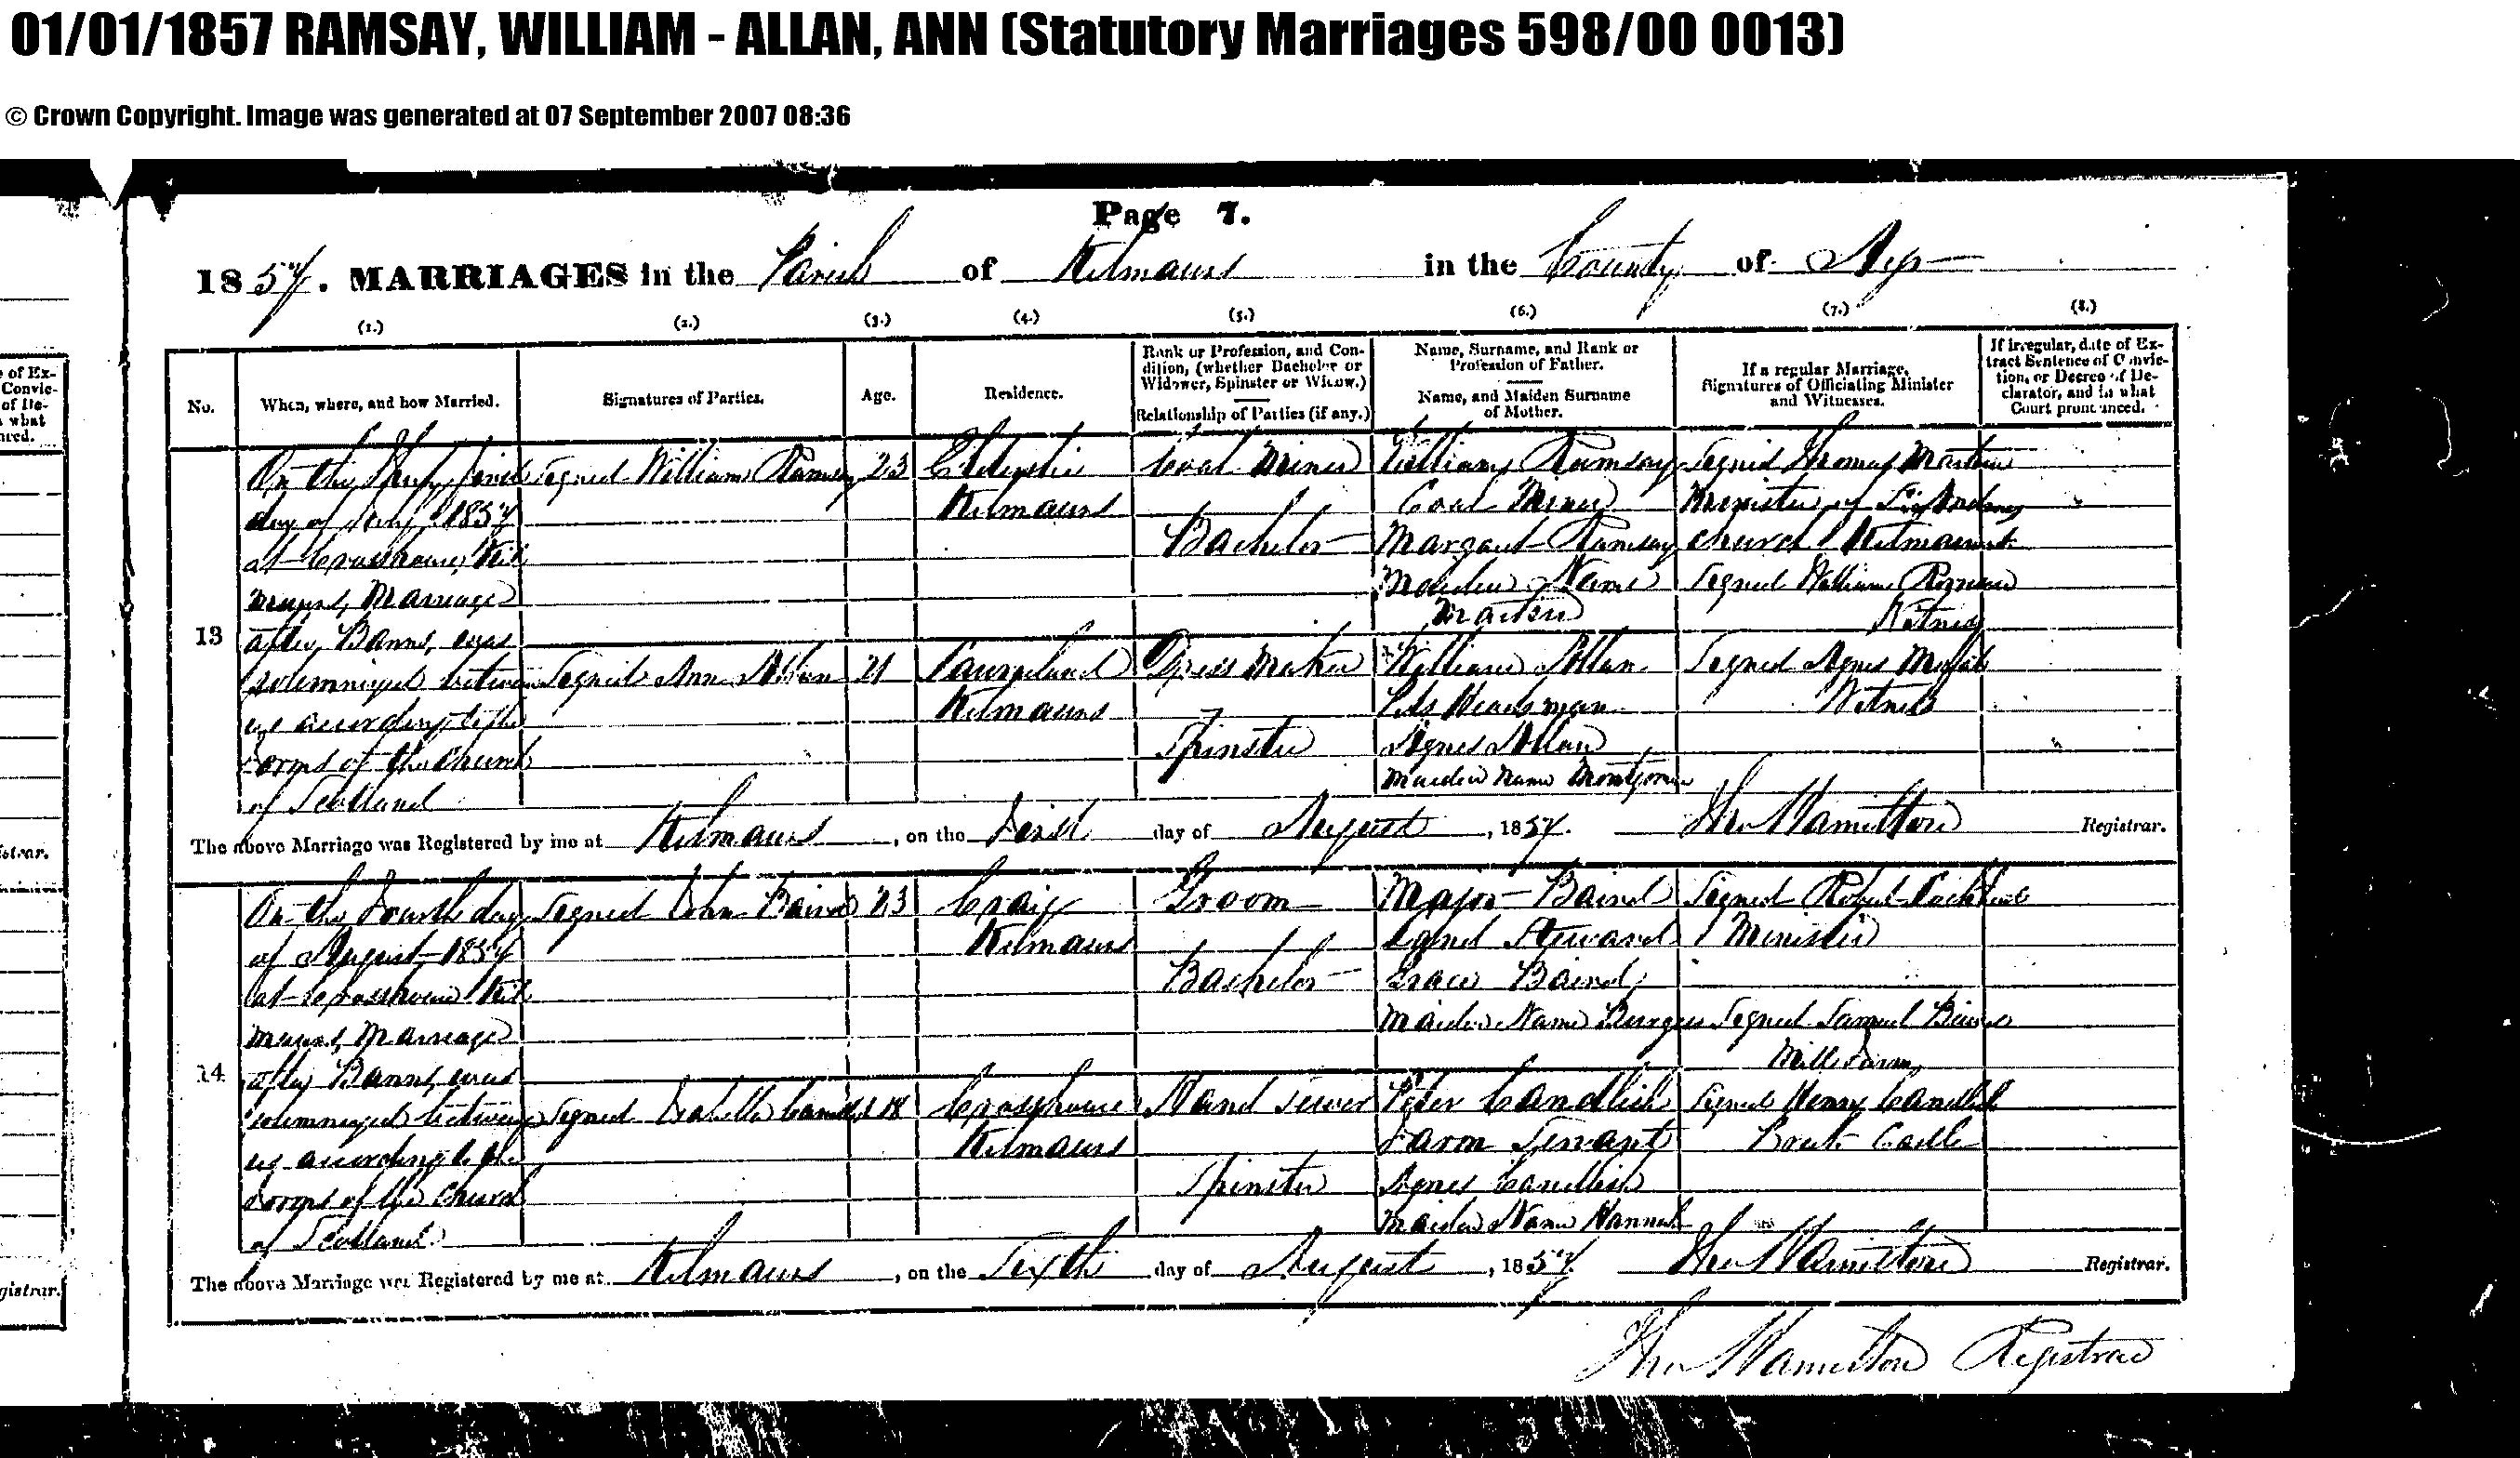 01/01/1857 RAMSAY, WILLIAM - ALLAN, ANN (Statutory Marriages 598/00 0013)
© Crown Copyright. Image was generated at 07 September 2007 08:36
Page 7.
1857. MARRIAGES in the Parish of Kilmaurs in the County of Ayr
(1.) (2.) (3.) (4.) (5.) (6.) (7.) (8.)
No.
When, where, and how Married.
Signatures of Parties.
Age.
Residence.
Rank or Profession, and Con-
dition, (whether Bachelor or
Widower, Spinster or Widow.)
Relationship of Parties (if any.)
Name, Surname, and Rank or
Profession of Father.
Name, and Maiden Surname
of Mother.
If a regular Marriage,
Signatures of Officiating Minister
and Witnesses.
If irregular, date of Ex-
tract Sentence of Convic-
tion, or Decree of De-
clarator, and in what
Court pronounced.
13
On the first
day of July 1857
at Crosshouse, Kil
maurs, Marriage
after Banns, was
solemnized between
us according to the
Forms of the Church
of Scotland
Signed William Ramsay
23
Kilmaurs
Coal Miner
Bachelor
William Ramsay
Coal Miner
Margaret Ramsay
Maiden Name
Signed Thomas Martin
Minister of St Andrews
Church Kilmarnock
Signed William
Witness
Signed Ann Allan
21
Kilmaurs
Dress Maker
Spinster
William Allan
Pit Headsman
Agnes Allan
Maiden Name
Signed Agnes
Witness
The above Marriage was Registered by me at Kilmaurs, on the First day of August, 1857. Hamilton Registrar.
14
On the Fourth day
of August 1857
at Crosshouse Kil
maurs, Marriage
after Banns, was
solemnized between
us according to the
Forms of the Church
of Scotland
Signed John Baird
23
Craig
Kilmaurs
Groom
Bachelor
Major Baird
Land Steward
Grace Baird
Maiden Name
Signed Robert
Minister
Signed Samuel
Signed Isabella Candlish
18
Crosshouse
Kilmaurs
Hand Sewer
Spinster
Peter Candlish
Farm Servant
Agnes Candlish
Maiden Name Hannah
Signed Henry Candlish
The above Marriage was Registered by me at Kilmaurs, on the Sixth day of August, 1857 Hamilton Registrar.
Hamilton Registrar